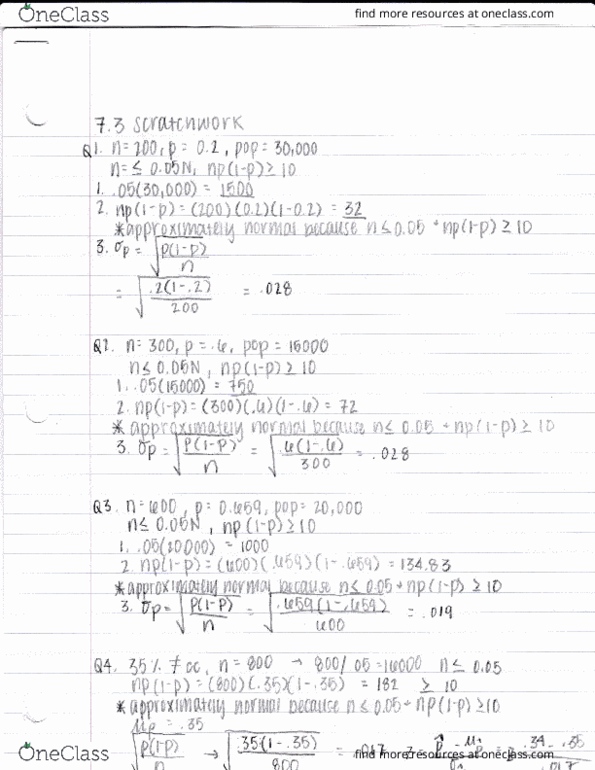 OneClass
find more resources at oneclass.com
7.3 scratchwork
Q1. n=200, p = 0.2, pop = 30,000
n= ≤ 0.05N, np(1-p) ≥ 10
1. .05(30,000) = 1500
2. np(1-p) = (200)(0.2)(1-0.2) = 32
*approximately normal because n≤0.05 + np(1-p) ≥ 10
3. σp = √p(1-p)/n
= √.2(1-.2)/200 = .028
Q2. n= 300, p = .6, pop = 15000
n≤ 0.05N, np(1-p) ≥ 10
1. .05(15000) = 750
2. np(1-p) = (300)(.6)(1-.6) = 72
* approximately normal because n≤ 0.05 + np(1-p) ≥ 10
3. σp = √p(1-p)/n = √.6(1-.6)/300 = .028
Q3. n=600, p = 0.659, pop= 20,000
n≤ 0.05N, np(1-p) ≥10
1. .05(20000) = 1000
2. np(1-p) = (600)(.659)(1-.659) = 134.83
*approximately normal because n≤ 0.05 + np(1-p) ≥ 10
3. σp = √p(1-p)/n = √.659(1-.659)/600 = .019
Q4. 35% n = 800 → 800/.05 =16000 n≤ 0.05
np(1-p) = (800)(.35)(1-.35) = 182 ≥ 10
*approximately normal because n≤ 0.05 + np(1-p) ≥10
μp = .35
√p(1-p)/n → √.35(1-.35)/800 = .017 .34 - .35
OneClass
find more resources at oneclass.com